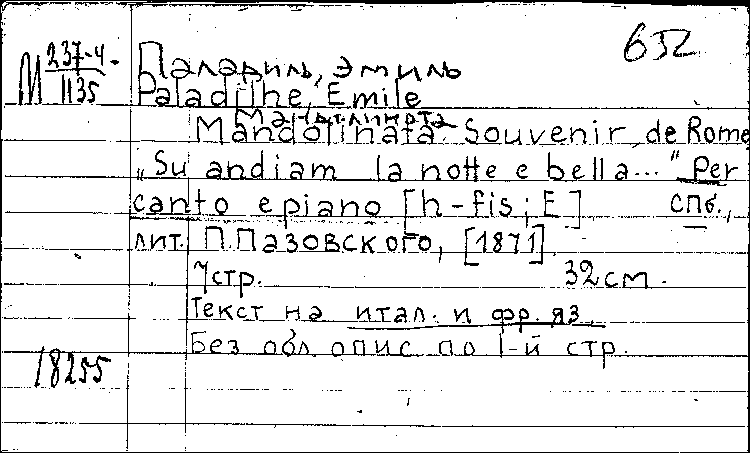 652
М 237-4
1135
Паладиль, Эмиль
Paladilhe, Emile
Мандолината
Mandolinata. Souvenir de Rome
„Su andiam la notte e bella..." Per
canto e piano [h-fis; E] СПб.,
лит. П. Пазовского, [1871]
7 стр. 32 см.
Текст на итал. и фр. яз.
Без обл. опис по 1-й стр.
18255